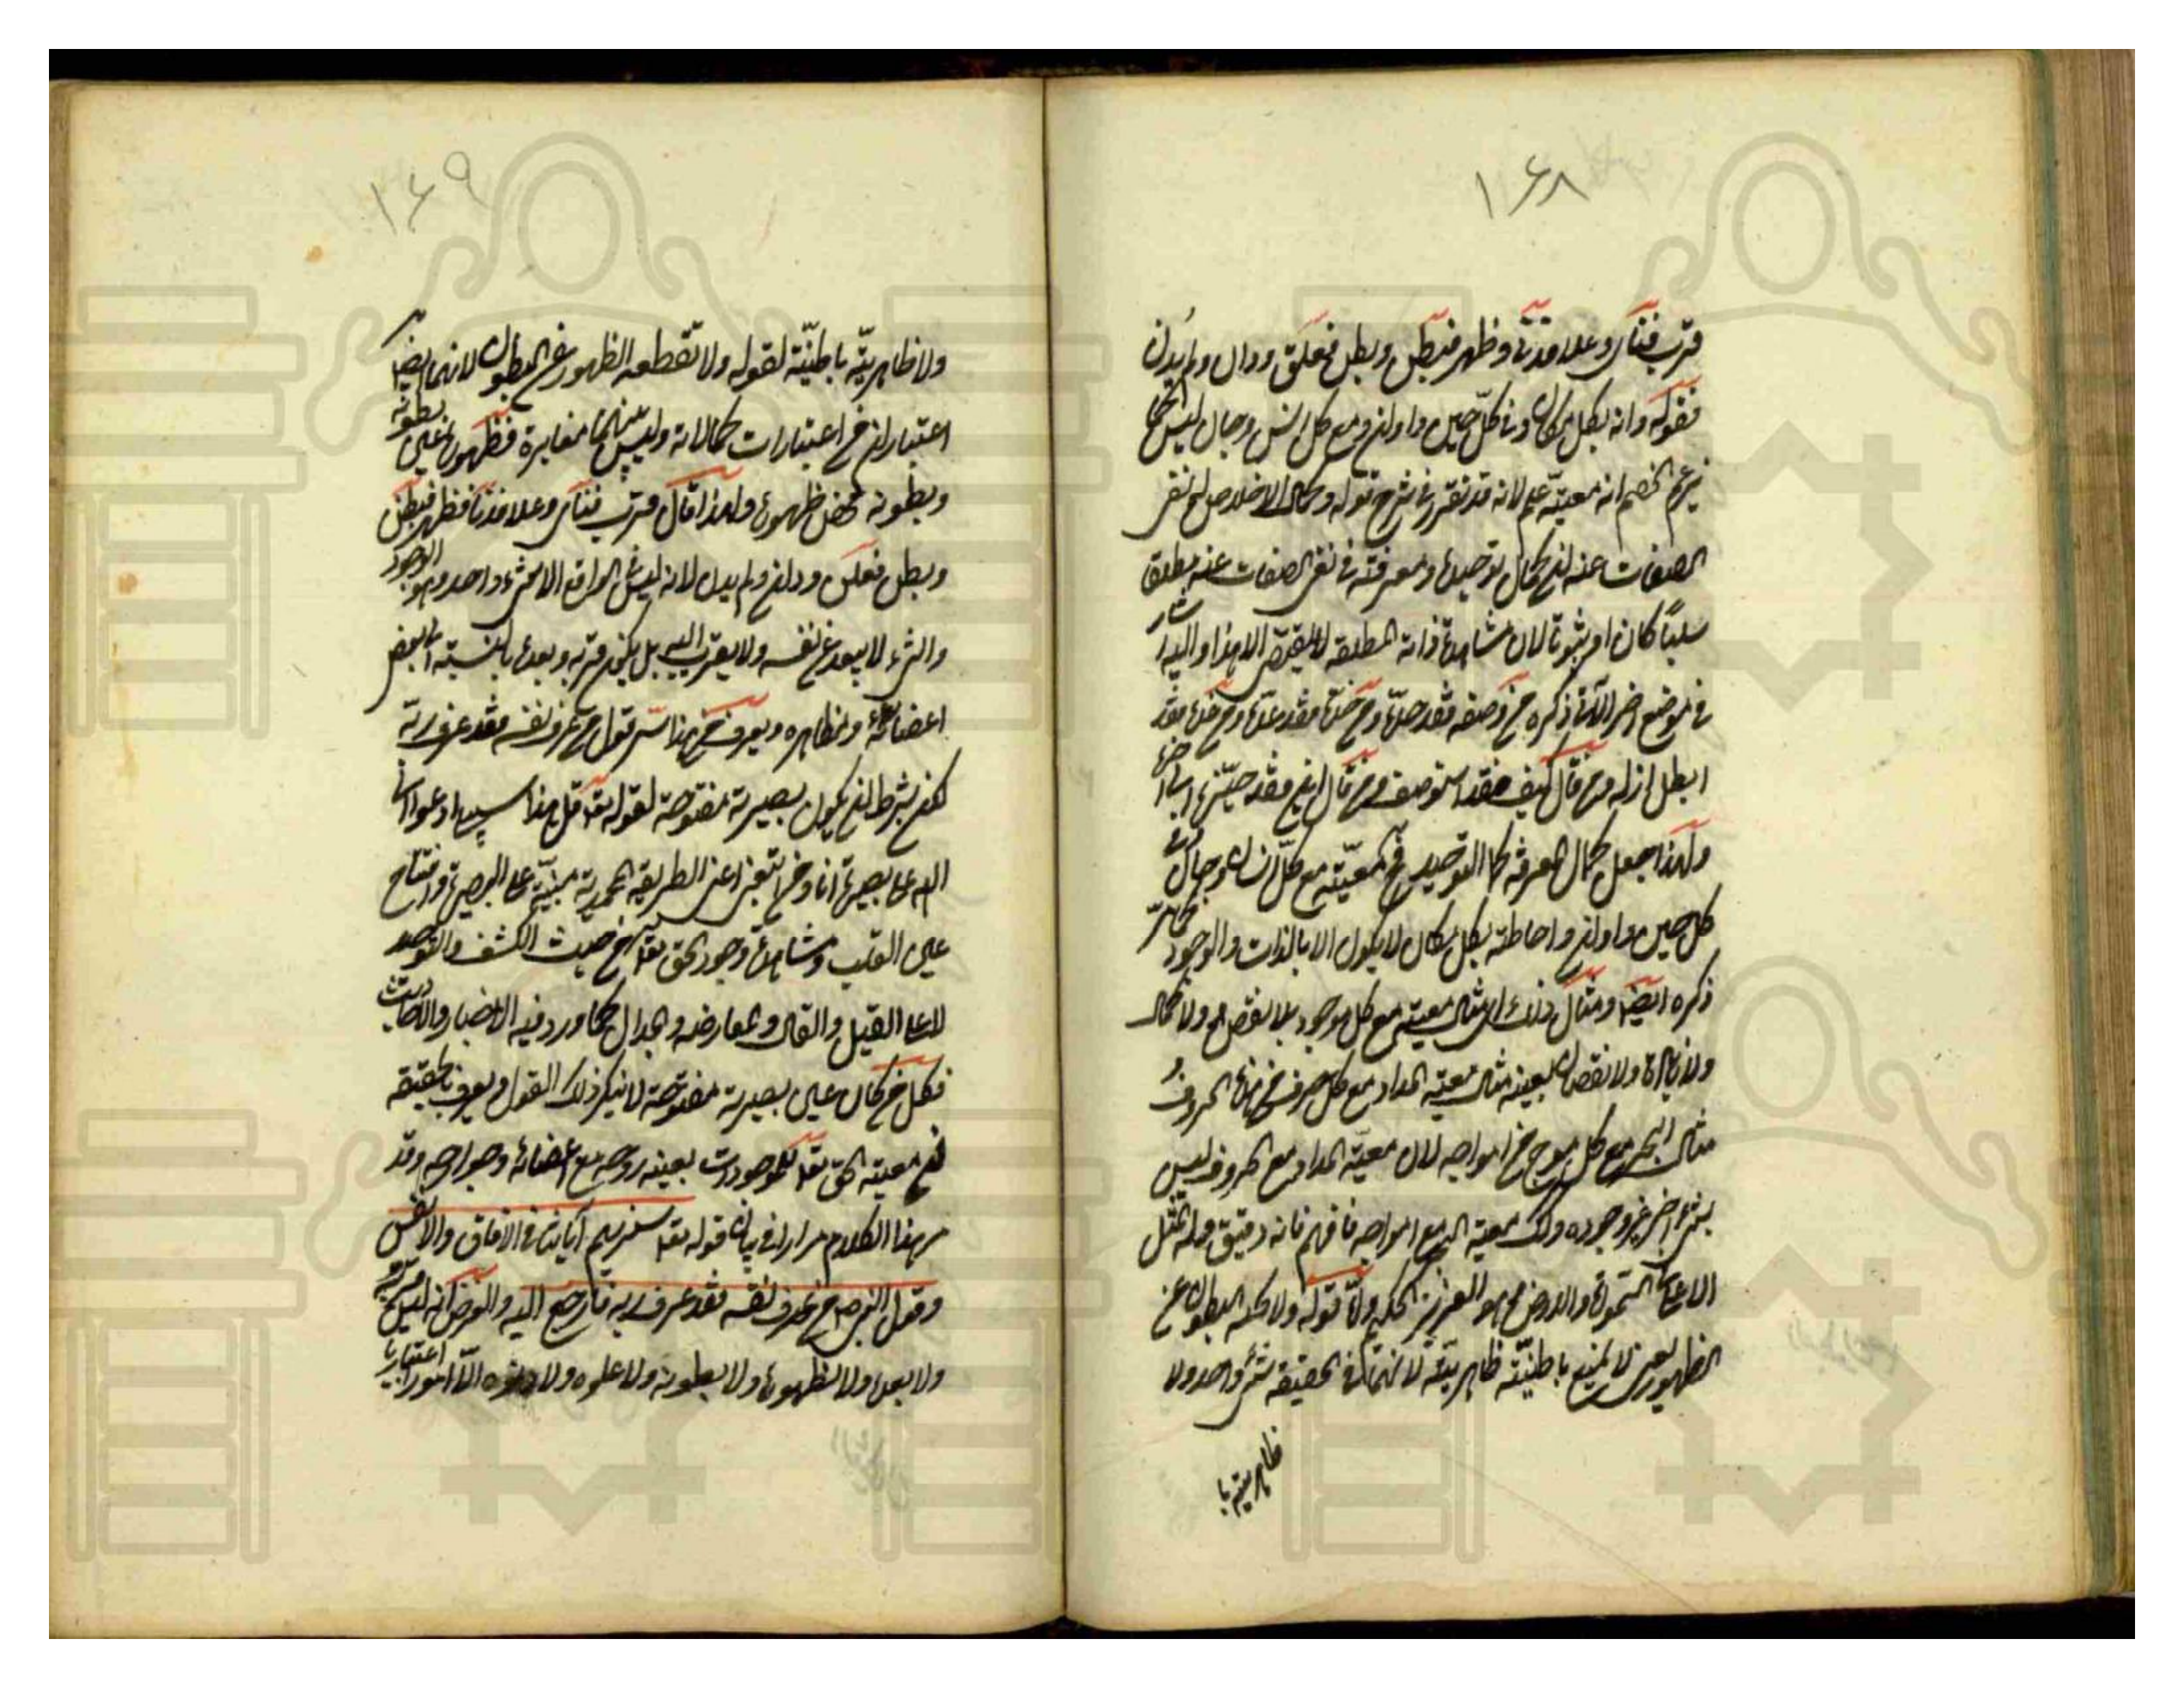 ١٦٨
قرب فنأى وعلا فدنا وظهر فبطن وبطن فعلن ودان ولم يدن
فقوله وانه بكل مكان وفى كل حين واوان ومع كل انس وجان ليس كما
يزعم الخصم انه معيّة علم لانه قد تقرر فى شرح قوله وكمال الاخلاص له نفى
الصفات عنه ان كمال توحيده ومعرفته فى نفى الصفات عنه مطلقا
سلبيّا كان او ثبوتيا لان مشاهدة ذاته المطلقة لا يقتضى الا هذا واليه اشار
فى موضع اخر الآتى ذكره من وصفه فقد حدّه ومن حدّه فقد عدّه ومن عدّه فقد
ابطل ازله ومن قال كيف فقد استوصفه ومن قال اين فقد حيّزه
ولهذا جعل كمال المعرفة كمال التوحيد فمعيّته مع كل انسان وجان
كل حين واوان واحاطته بكل مكان لا يكون الا بالذات والوجود كما مرّ
ذكره ايضا ومثال ذلك اى مثال معيته مع كل موجود بلا نقص ولا كمال
ولا زيادة ولا نقصان بعينه مثال معية المداد مع كل حرف من هذه الحروف
مثال البحر مع كل موج من امواجه لان معيّة المداد مع الحروف ليس
بشىء اخر غير وجوده وكذلك معية البحر مع امواجه فافهم فانه دقيق وله المثل
الاعلى فى السموات والارض وهو العزيز الحكيم وامّا قوله ولا يجنه البطون عن
الظهور يعنى لا يمنع باطنيّته ظاهريّته لانهما فى الحقيقة شىء واحد ولا
ظاهريته با
١٦٩
ولا ظاهريّته باطنيّته لقوله ولا تقطعه الظهور عن البطون لانهما ايضا
اعتباران من اعتبارات كمالاته وليس بينهما مغايرة فظهوره عين بطونه
وبطونه محض ظهوره ولهذا قال قرب فنأى وعلا فدنا فظهر فبطن
وبطن فعلن ودان ولم يدن لانه ليس فى الواقع الا شىء واحد وهو الوجود
والشىء لا يبعد عن نفسه ولا يقرب اليه بل يكون قربه وبعده بالنسبة الى بعض
اعضائه ومظاهره ويعرف من هذا سرّ قول من عرف نفسه فقد عرف ربه
لكن بشرط ان يكون بصيرته مفتوحة لقوله تعالى قل هذه سبيلى ادعوا الى
الله على بصيرة انا ومن اتبعنى اعنى الطريقة المحمدية مبنيّة على البصيرة وافتتاح
عين القلب ومشاهدة وجود الحق تعالى من حيث الكشف والتوحيد
لا على القيل والقال والمعارضه والجدال كما ورد فيه الاخبار والاحاديث
فكل من كان عين بصيرته مفتوحة لا ينكر ذلك القول ويعرف بالحقيقه
ان معية الحق تعالى للموجودات بعينه روحه مع اعضائه وجوارحه وقد
مرّ هذا الكلام مرارا فى بيان قوله تعالى سنريهم آياتنا فى الافاق والانفس
وقول النبى ص من عرف نفسه فقد عرف ربه فارجع اليه والغرض انه ليس قربه
ولا بعده ولا ظهوره ولا بطونه ولا علوه ولا دنوه الّا امورا اعتباريا